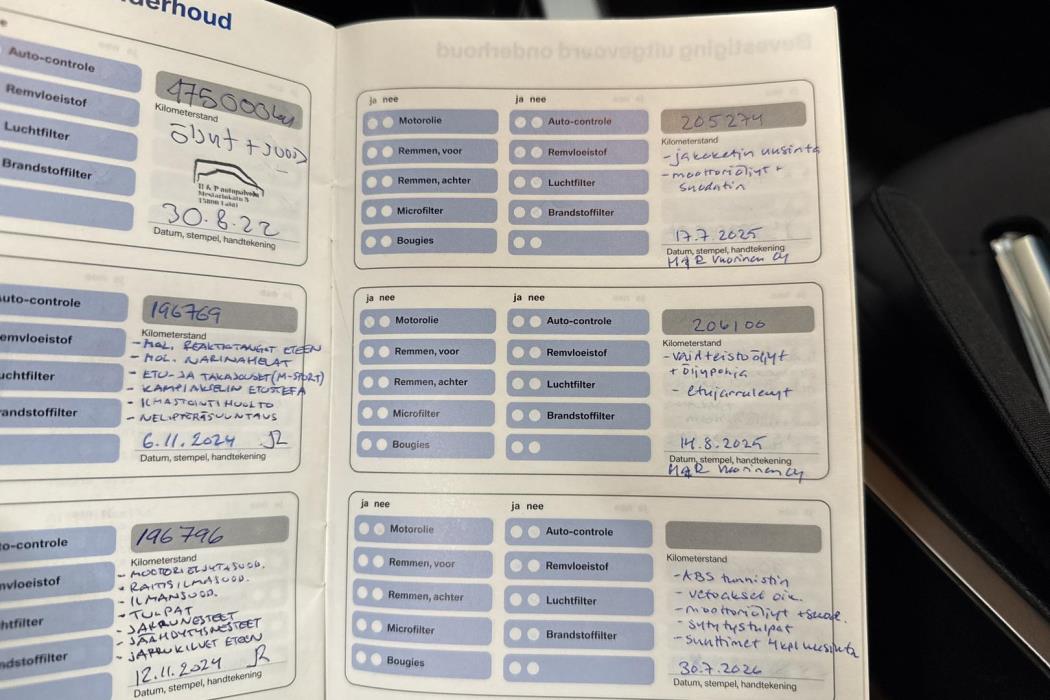 derhoud
Auto-controle
Remvloeistof
Luchtfilter
Brandstoffilter
175000km
Kilometerstand
öljyt + suod
15800 Lahti
30.8.22
Datum, stempel, handtekening
uto-controle
emvloeistof
uchtfilter
andstoffilter
196769
Kilometerstand
- MOL. REAKTIOTANGOT ETEEN
- MOL. NARINAHELAT
- ETU- JA TAKAJOUSET (M-SPORT)
- KAMPIAKSELIN ETUSTEFA
- ILMASTOINTIHUOLTO
- NELIPYÖRÄSUUNTAUS
6.11.2024
Datum, stempel, handtekening
to-controle
mvloeistof
htfilter
ndstoffilter
196796
Kilometerstand
- MOOTTORIÖLJYT & SUOD.
- RAITISILMASUOD.
- ILMANSUOD.
- TULPAT
- JARRUNESTEET
- JÄÄHDYTYSNESTEET
- JARRUKILVET ETEEN
12.11.2024
Datum, stempel, handtekening
Bevestiging uitgevoerd onderhoud
ja nee
ja nee
Motorolie
Remmen, voor
Remmen, achter
Microfilter
Bougies
Auto-controle
Remvloeistof
Luchtfilter
Brandstoffilter
205274
Kilometerstand
- jakoketjun uusinta
- moottoriöljyt +
suodatin
17.7.2025
Datum, stempel, handtekening
H&R Vuorinen Oy
ja nee
ja nee
Motorolie
Remmen, voor
Remmen, achter
Microfilter
Bougies
Auto-controle
Remvloeistof
Luchtfilter
Brandstoffilter
206100
Kilometerstand
- vaihteistoöljyt
+ öljypohja
- etujarrulevyt
14.8.2025
Datum, stempel, handtekening
H&R Vuorinen Oy
ja nee
ja nee
Motorolie
Remmen, voor
Remmen, achter
Microfilter
Bougies
Auto-controle
Remvloeistof
Luchtfilter
Brandstoffilter
Kilometerstand
- ABS tunnistin
- vetoakseli oik.
- moottoriöljyt + suod.
- sytytystulpat
- suuttimet 4 kpl uusinta
30.7.2026
Datum, stempel, handtekening